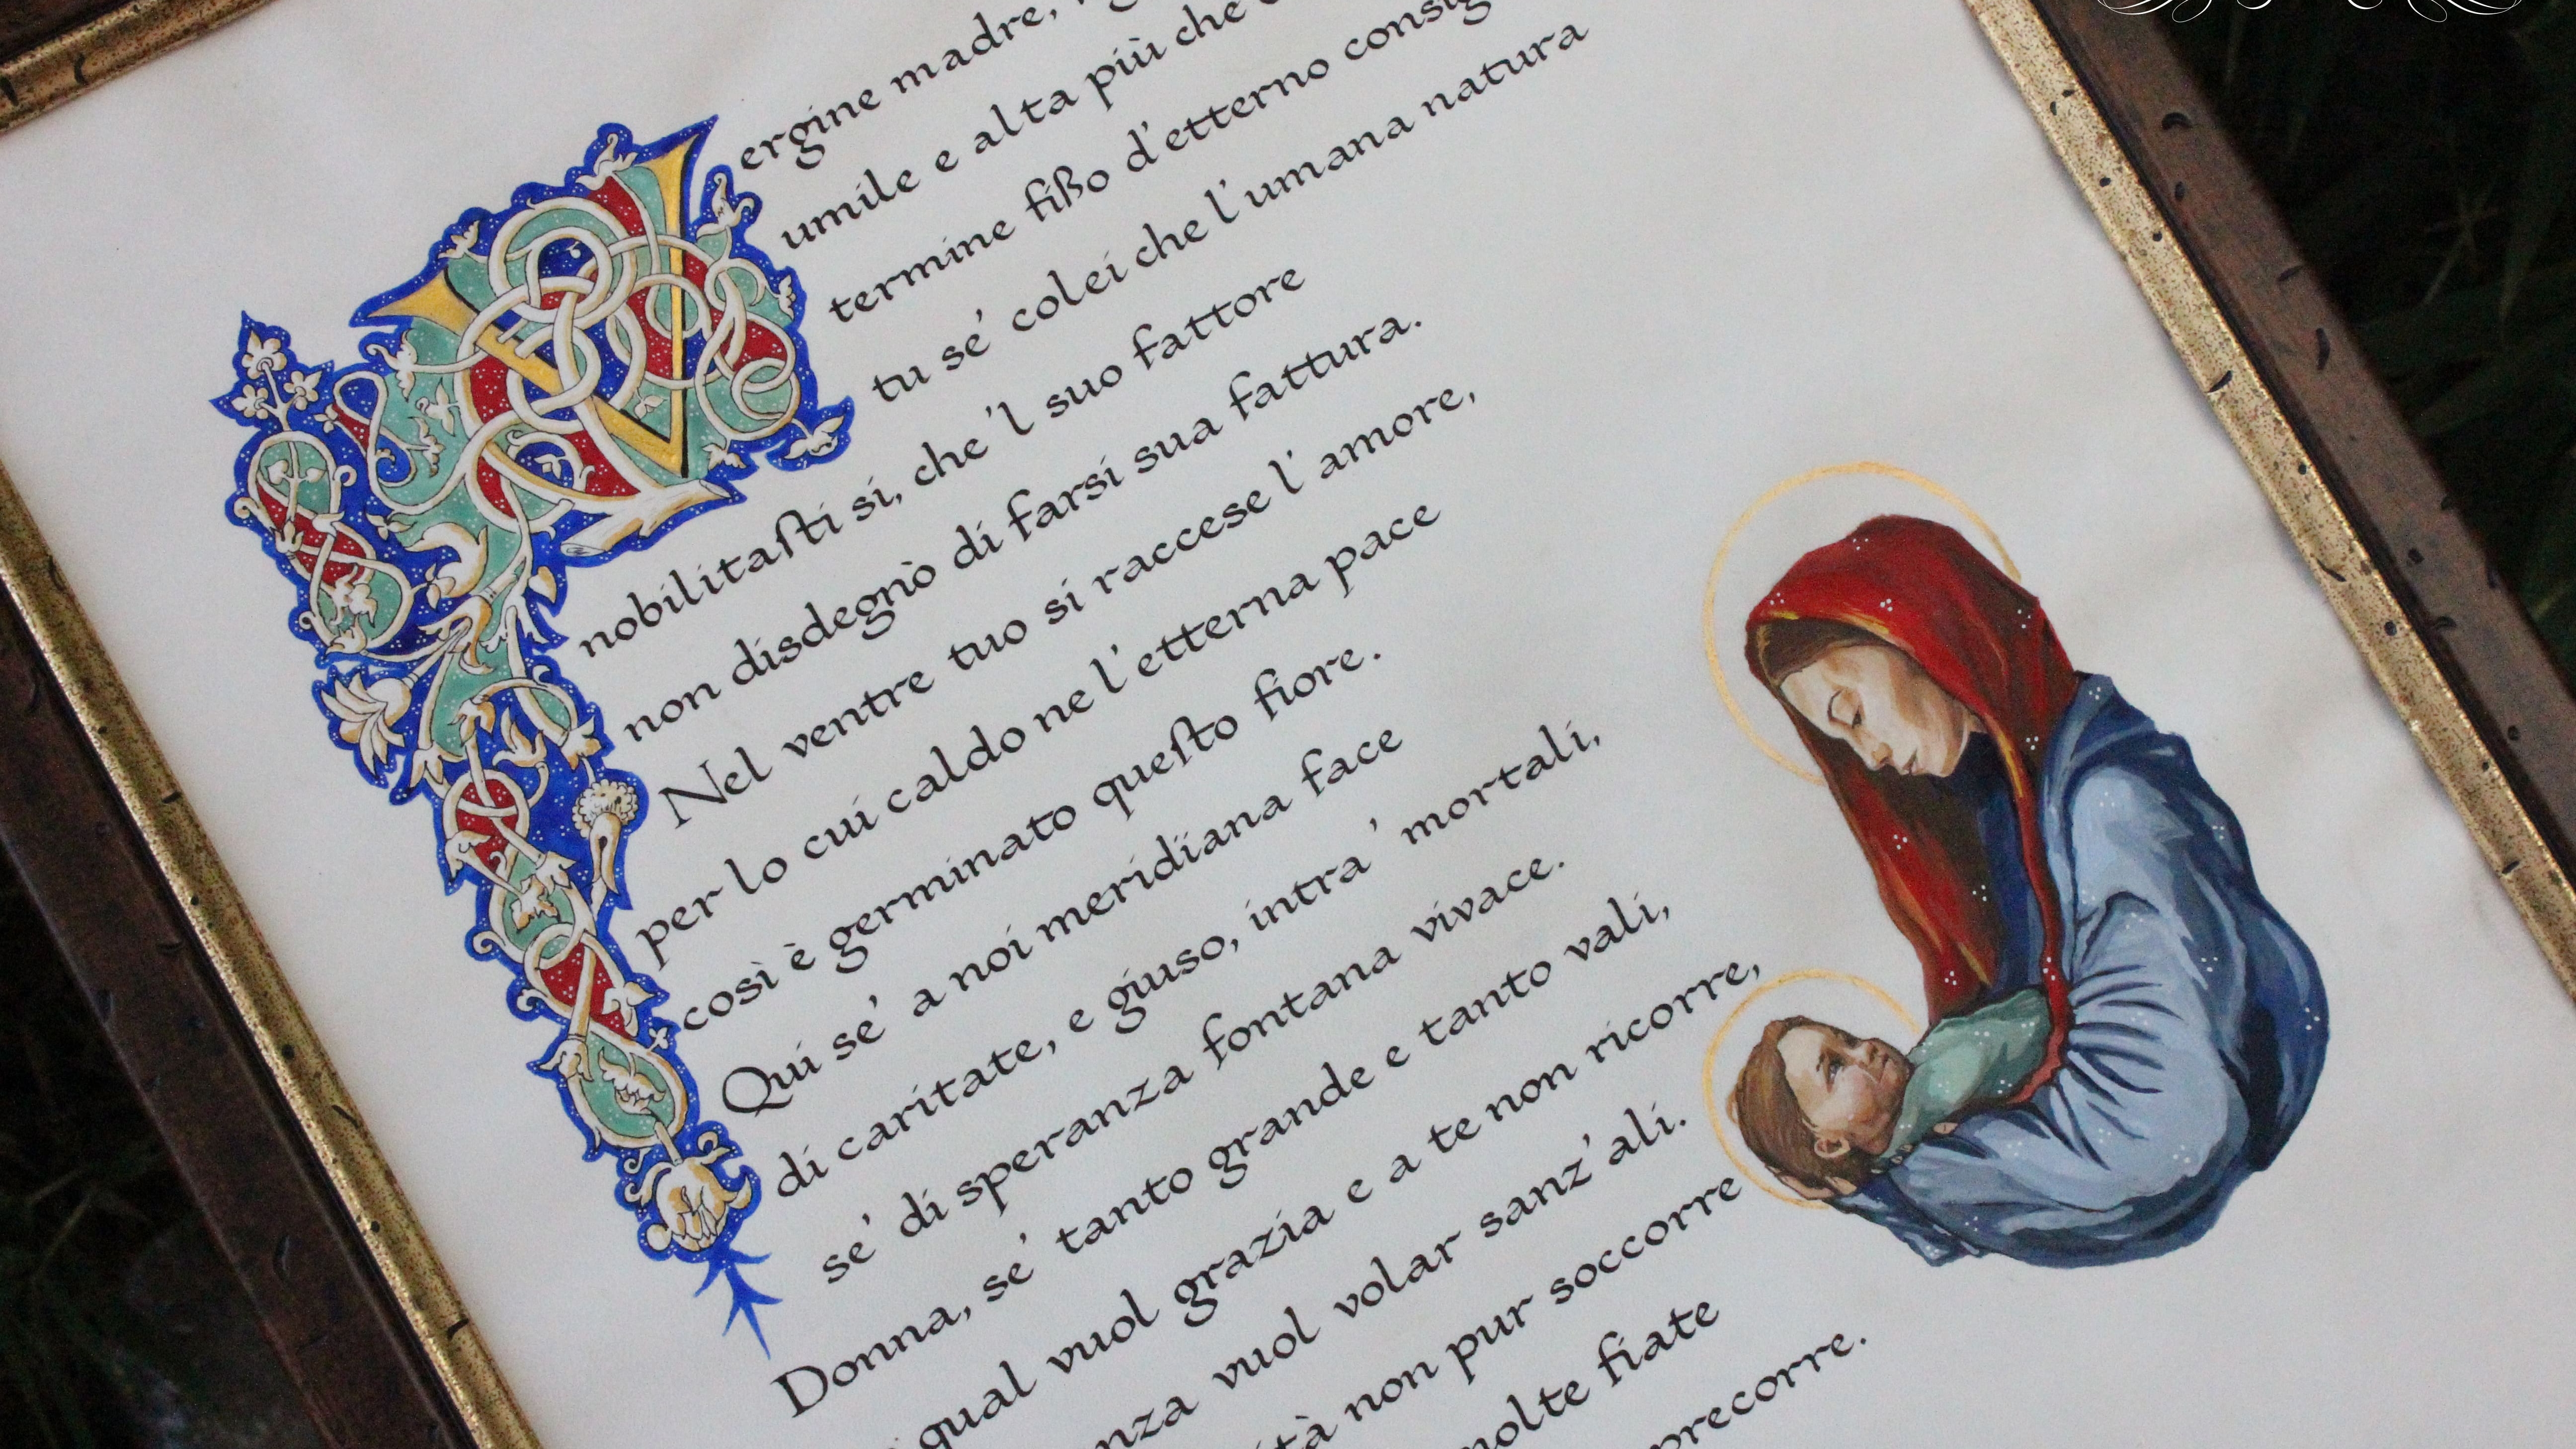 Vergine madre,
umile e alta più che
termine fißo d'etterno consig
tu se' colei che l'umana natura
nobilitaſti si, che 'l suo fattore
non disdegnò di farsi sua fattura.
Nel ventre tuo si raccese l' amore,
per lo cui caldo ne l' etterna pace
così è germinato queſto fiore.
Qui se' a noi meridïana face
di caritate, e giuso, intra ' mortali,
se' di speranza fontana vivace.
Donna, se' tanto grande e tanto vali,
qual vuol grazia e a te non ricorre,
nza vuol volar sanz' ali.
tà non pur soccorre
molte fiate
precorre.